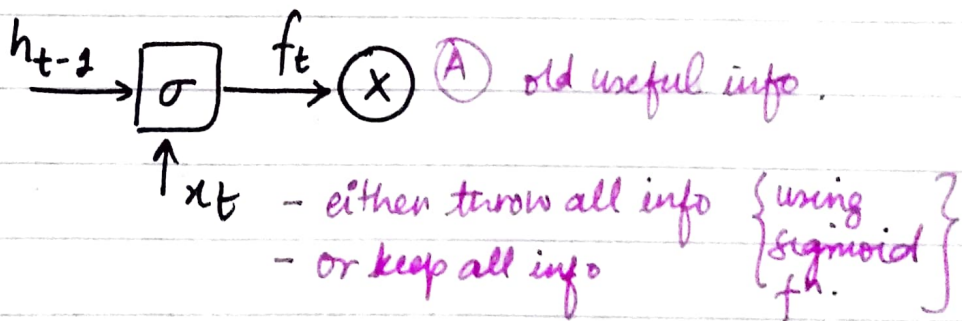 h_{t-1} σ f_t X A old useful info.
x_t - either throw all info {using
- or keep all info sigmoid
fn.}